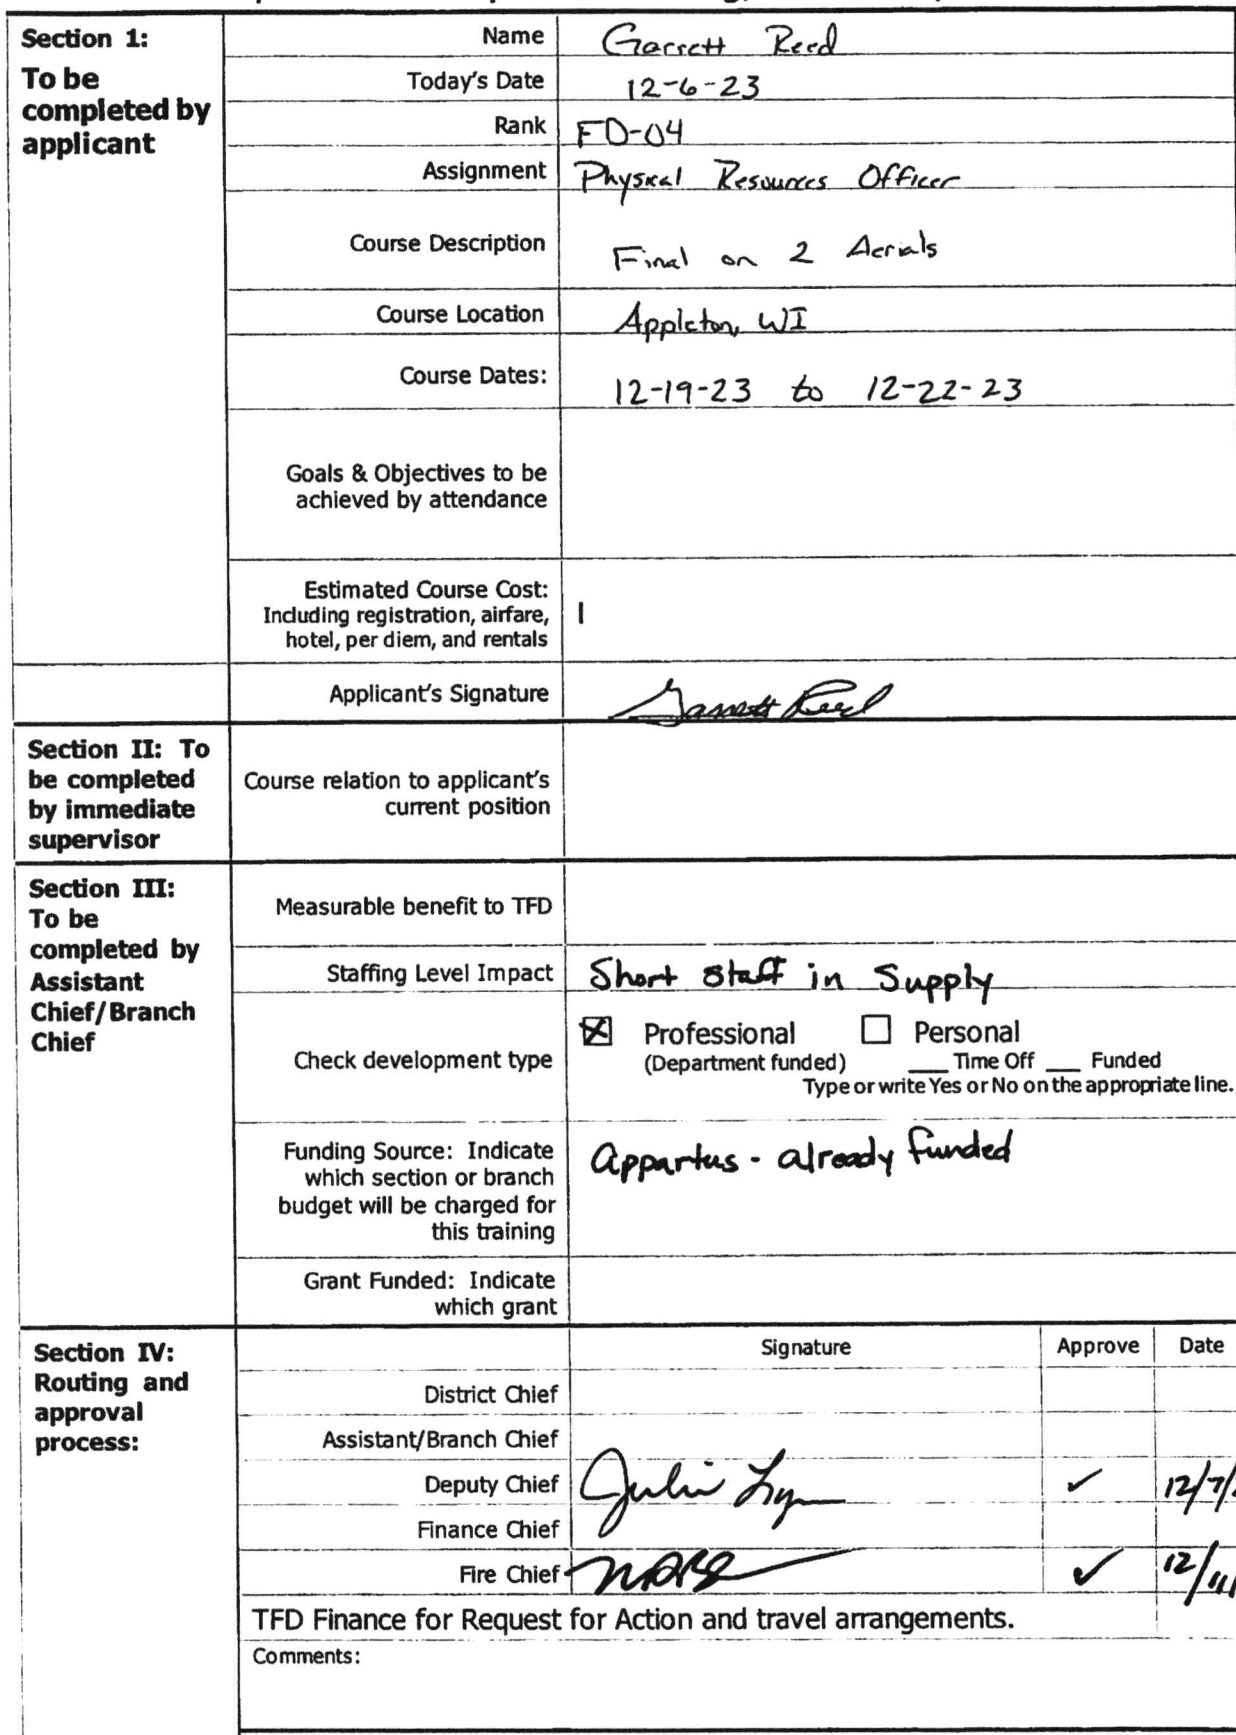 Section 1:
To be
completed by
applicant
Name Garrett Reed
Today's Date 12-6-23
Rank FD-04
Assignment Physical Resources Officer
Course Description Final on 2 Aerials
Course Location Appleton, WI
Course Dates: 12-19-23 to 12-22-23
Goals & Objectives to be
achieved by attendance
Estimated Course Cost:
Including registration, airfare,
hotel, per diem, and rentals
Applicant's Signature Garrett Reed
Section II: To
be completed
by immediate
supervisor
Course relation to applicant's
current position
Section III:
To be
completed by
Assistant
Chief/Branch
Chief
Measurable benefit to TFD
Staffing Level Impact Short Staff in Supply
Check development type
☒ Professional ☐ Personal
(Department funded) ___ Time Off ___ Funded
Type or write Yes or No on the appropriate line.
Funding Source: Indicate
which section or branch
budget will be charged for
this training
Appartus - already funded
Grant Funded: Indicate
which grant
Section IV:
Routing and
approval
process:
Signature Approve Date
District Chief
Assistant/Branch Chief
Deputy Chief Julie ✓ 12/7/
Finance Chief
Fire Chief ✓ 12/11/
TFD Finance for Request for Action and travel arrangements.
Comments: